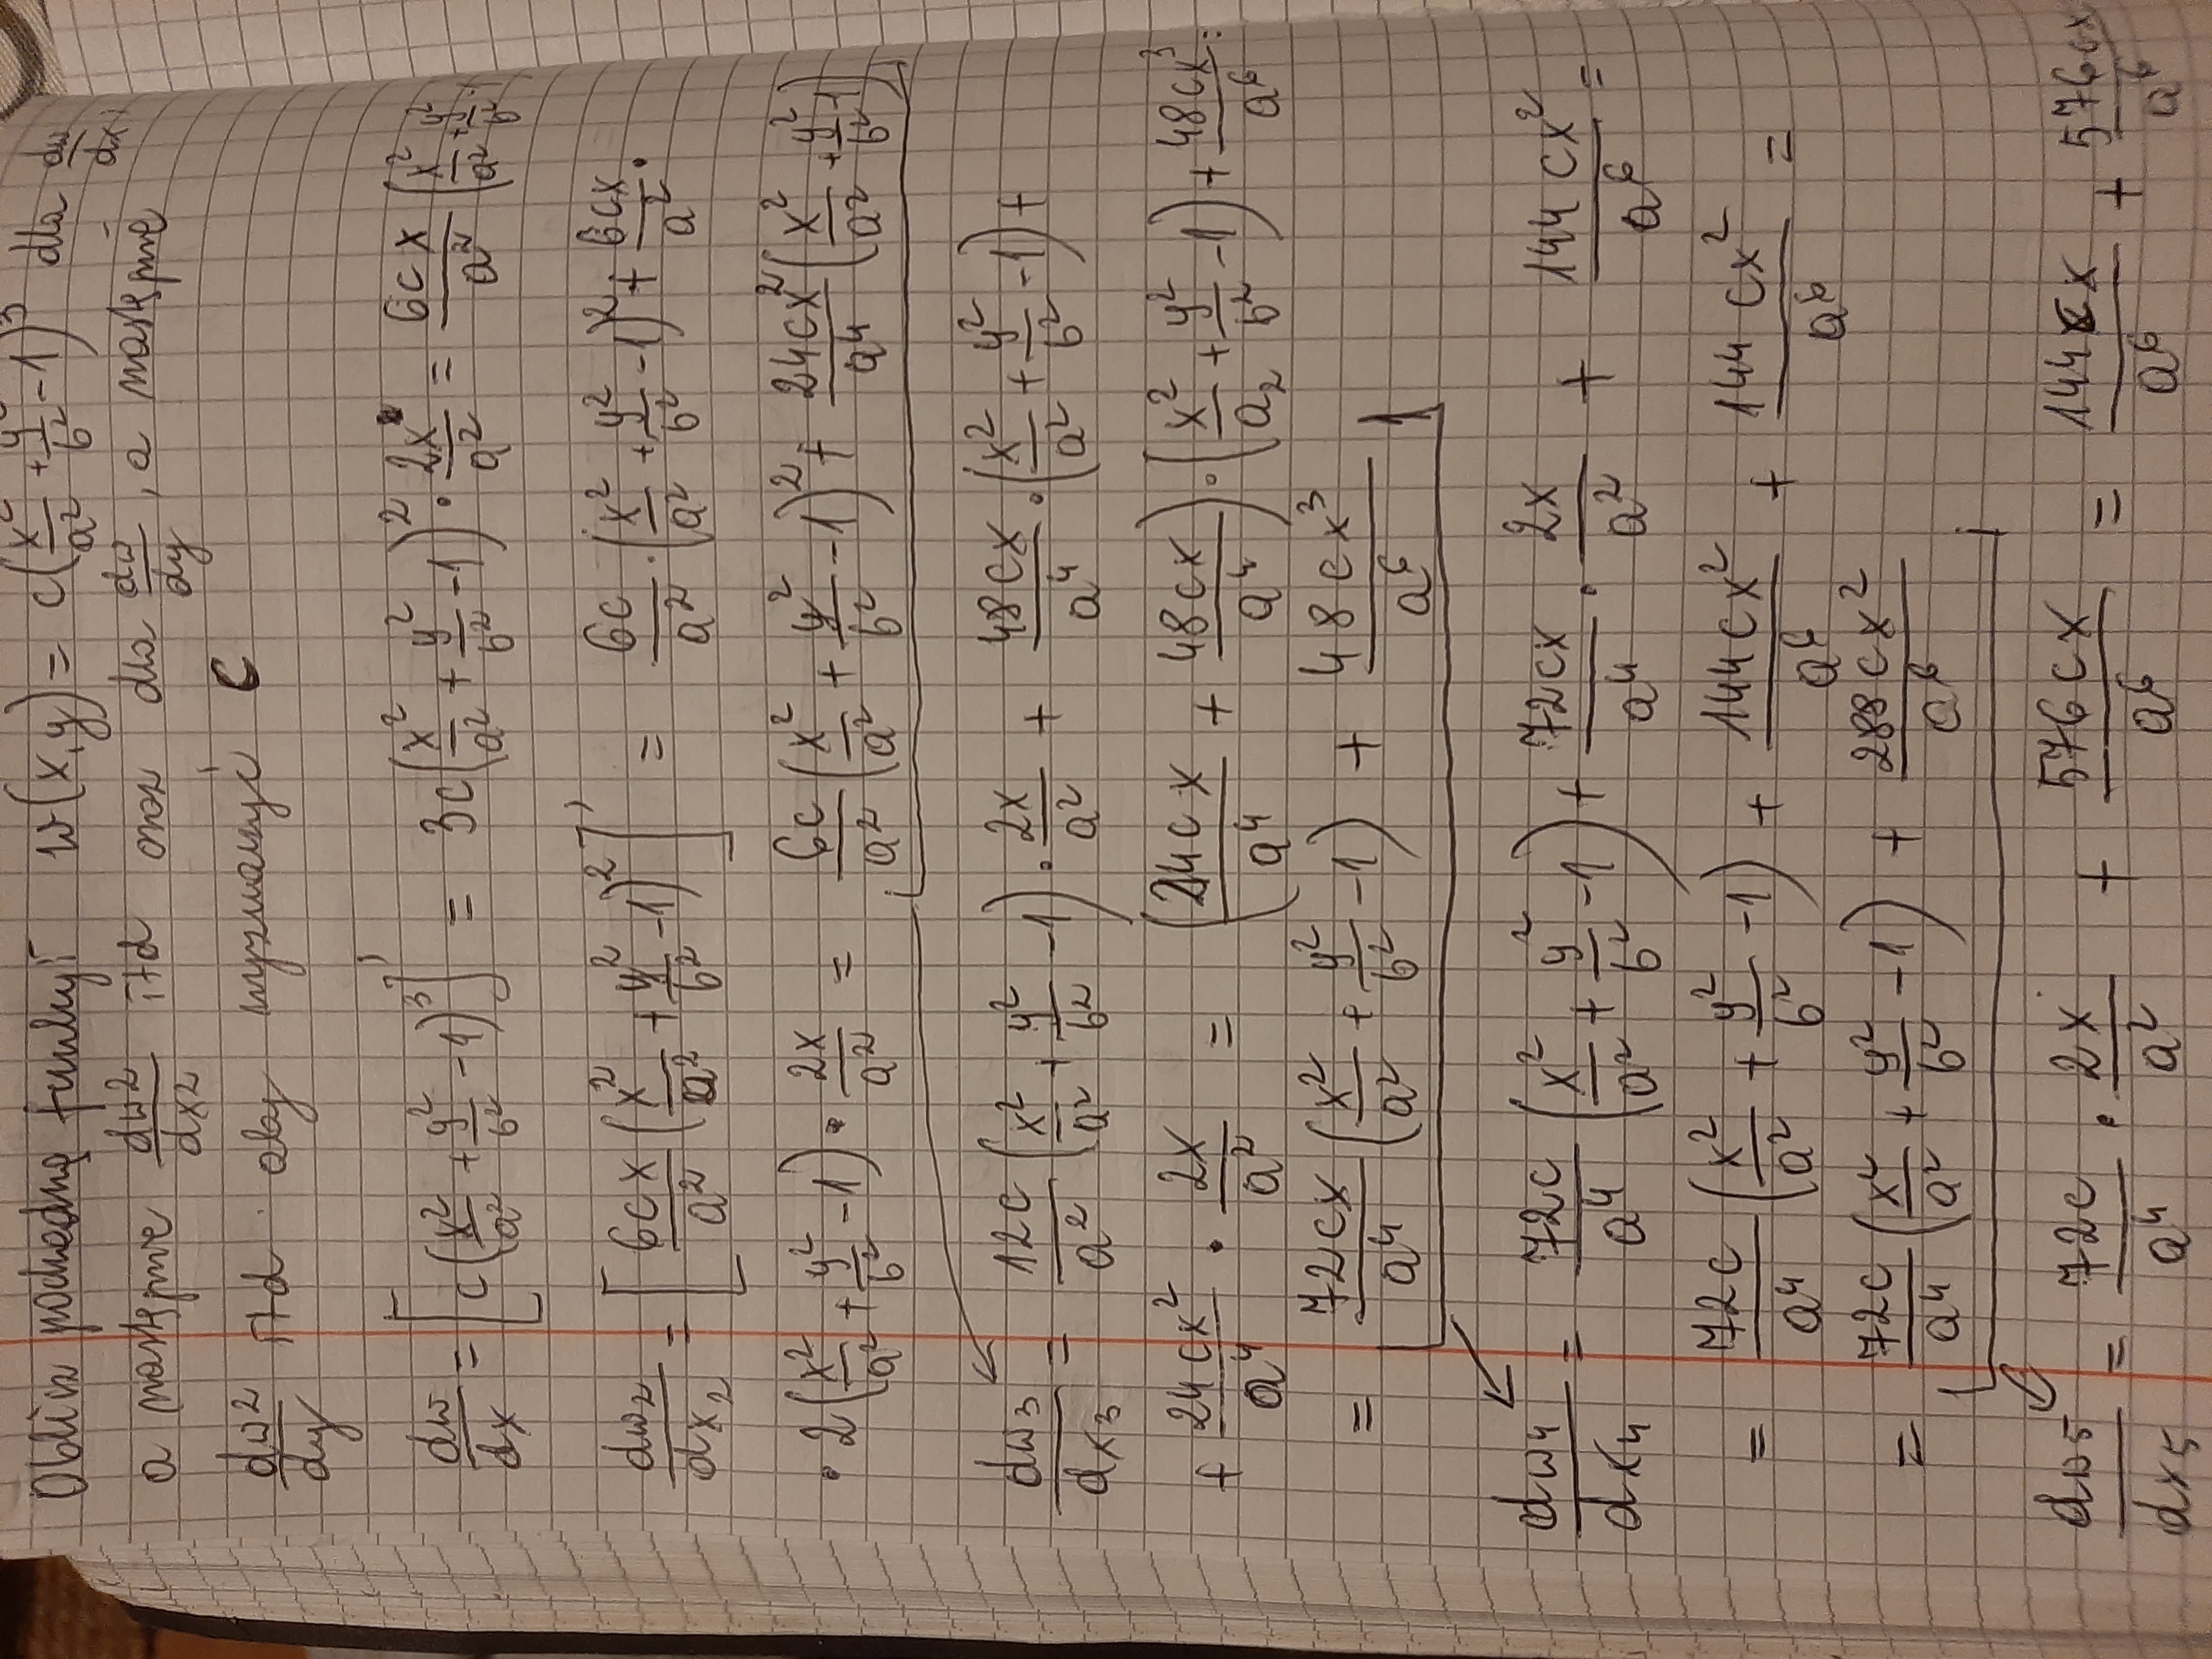 Oblicz pochodną funkcyi w(x,y) = c(x²/a² + y²/b² - 1)³ dla dw/dx,
a następnie dw2/dx2 itd oraz dla dw/dy, a następnie
dw2/dy itd. aby wyznaczyć c
dw/dx = [c(x²/a² + y²/b² - 1)³]' = 3c(x²/a² + y²/b² - 1)² · 2x/a² = 6cx/a² (x²/a² + y²/b²
dw2/dx2 = [6cx/a² (x²/a² + y²/b² - 1)²]' = 6c/a² · (x²/a² + y²/b² - 1)² + 6cx/a² ·
· 2(x²/a² + y²/b² - 1) · 2x/a² = 6c/a² (x²/a² + y²/b² - 1)² + 24cx²/a⁴ (x²/a² + y²/b² - 1)
dw3/dx3 = 12c/a² (x²/a² + y²/b² - 1) · 2x/a² + 48cx/a⁴ · (x²/a² + y²/b² - 1) +
+ 24cx²/a⁴ · 2x/a² = (24cx/a⁴ + 48cx/a⁴) · (x²/a2 + y²/b² - 1) + 48cx³/a⁶ =
= 72cx/a⁴ (x²/a² + y²/b² - 1) + 48cx³/a⁶
dw4/dx4 = 72c/a⁴ (x²/a² + y²/b² - 1) + 72cx/a⁴ · 2x/a² + 144cx²/a⁶ =
= 72c/a⁴ (x²/a² + y²/b² - 1) + 144cx²/a⁶ + 144cx²/a⁶ =
= 72c/a⁴ (x²/a² + y²/b² - 1) + 288cx²/a⁶
dw5/dx5 = 72c/a⁴ · 2x/a² + 576cx/a⁶ = 144cx/a⁶ + 576cx/a⁶